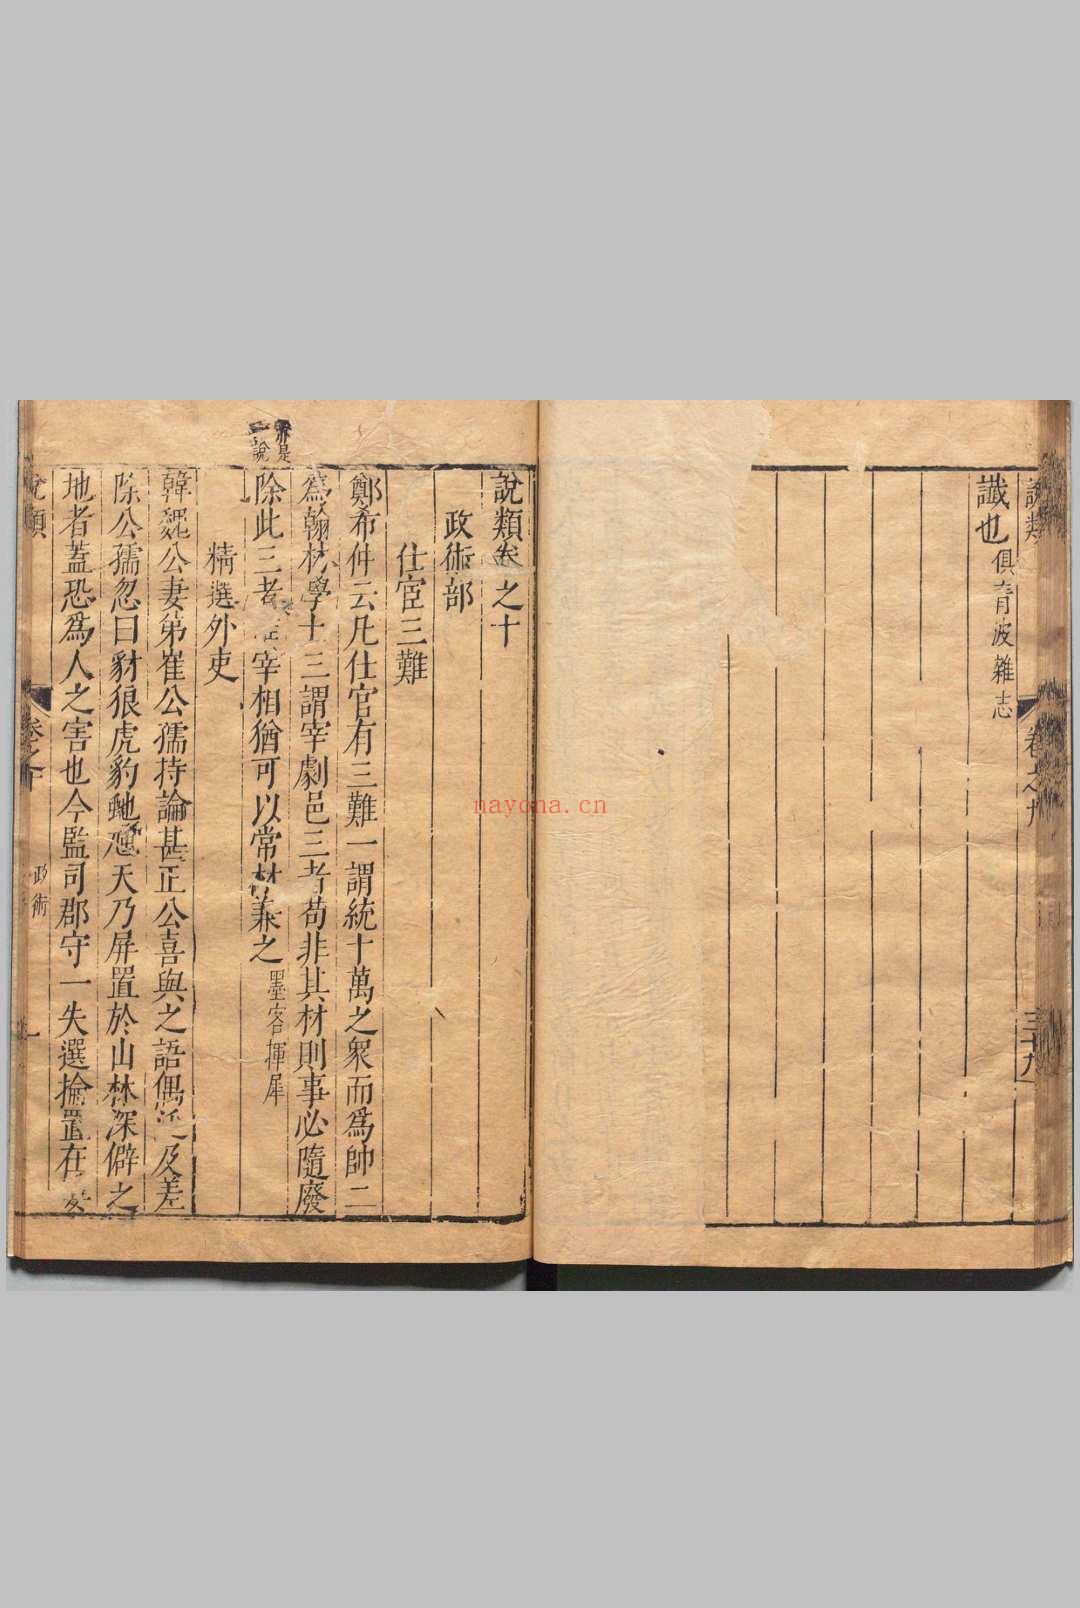 說類
卷之九
三十九
讖也 俱青波雜志
說類卷之十
政術部
仕宦三難
鄭希仲云凡仕官有三難一謂統十萬之眾而爲帥二
爲翰林學士三謂宰劇邑三者苟非其材則事必隨廢
除此三者 宰相猶可以常材兼之 墨客揮犀
亦是
一說
精選外吏
韓魏公妻弟崔公孺持論甚正公喜與之語偶泛及差
除公孺忽曰豺狼虎豹虵 天乃屏置於山林深僻之
地者蓋恐爲人之害也今監司郡守一失選掄置在
說類
卷之十
政術
一
nayona.cn